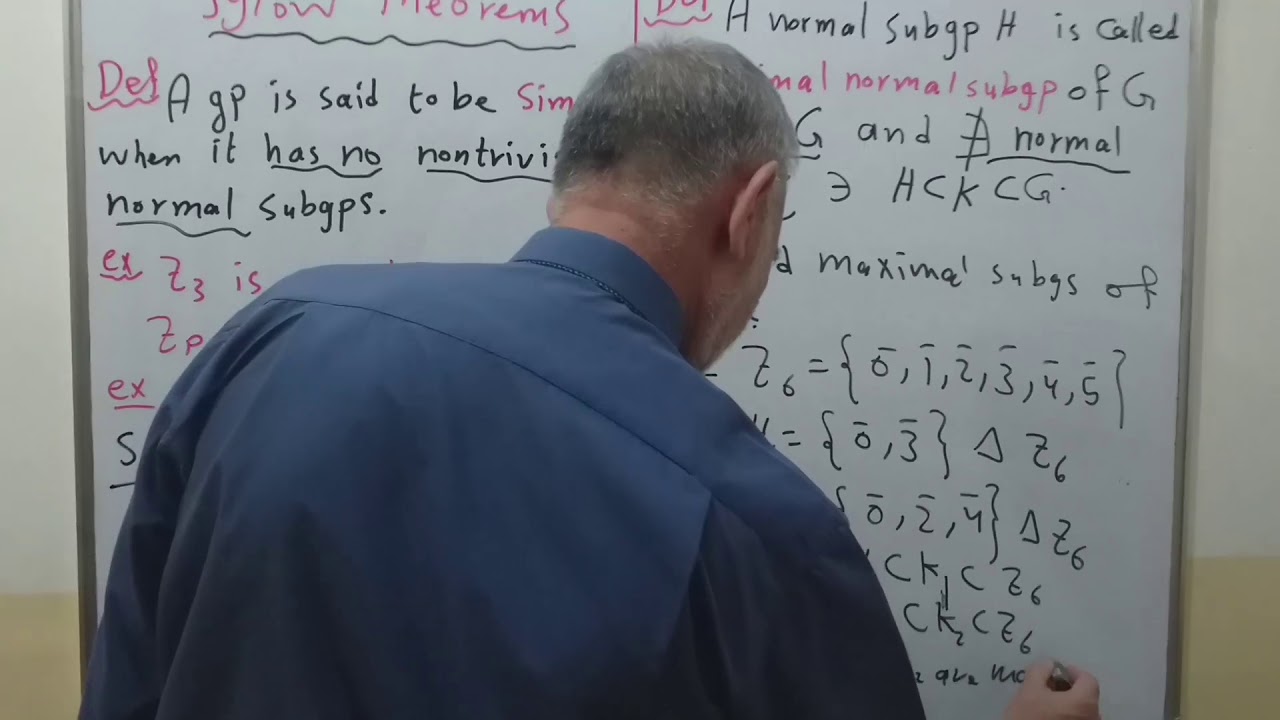 Sylow Theorems
Def A gp is said to be Sim
when it has no nontrivi
normal subgps.
ex Z3 is
Zp
ex
S
Def A normal subgp H is called
mal normal subgp of G
G and ∄ normal
∋ H⊂K⊂G.
maximal subgs of
Z6 = { 0̄, 1̄, 2̄, 3̄, 4̄, 5̄ }
= { 0̄, 3̄ } Δ Z6
{ 0̄, 2̄, 4̄ } Δ Z6
⊂ K1 ⊂ Z6
⊂ K2 ⊂ Z6
2 are